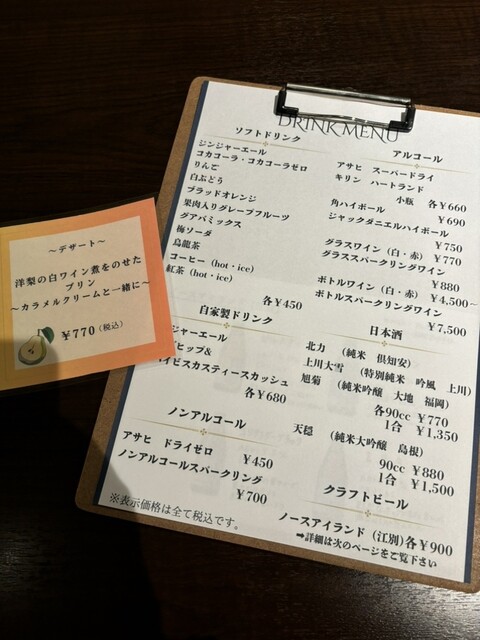 DRINK MENU
ソフトドリンク
ジンジャーエール
コカコーラ・コカコーラゼロ
りんご
白ぶどう
ブラッドオレンジ
果肉入りグレープフルーツ
グアバミックス
梅ソーダ
烏龍茶
コーヒー（hot・ice）
紅茶（hot・ice）
各￥450
自家製ドリンク
ジャーエール
ヒップ&
イビスカスティースカッシュ
各￥680
ノンアルコール
アサヒ ドライゼロ
￥450
ノンアルコールスパークリング
￥700
※表示価格は全て税込です。
アルコール
アサヒ スーパードライ
キリン ハートランド
小瓶 各￥660
角ハイボール
￥690
ジャックダニエルハイボール
￥750
グラスワイン（白・赤）￥770
グラススパークリングワイン
￥880
ボトルワイン（白・赤）￥4,500~
ボトルスパークリングワイン
￥7,500
日本酒
北力 （純米 倶知安）
上川大雪 （特別純米 吟風 上川）
旭菊 （純米吟醸 大地 福岡）
各90cc ￥770
1合 ￥1,350
天穏 （純米大吟醸 島根）
90cc ￥880
1合 ￥1,500
クラフトビール
ノースアイランド（江別）各￥900
➡詳細は次のページをご覧下さい
～デザート～
洋梨の白ワイン煮をのせた
プリン
～カラメルクリームと一緒に～
￥770（税込）